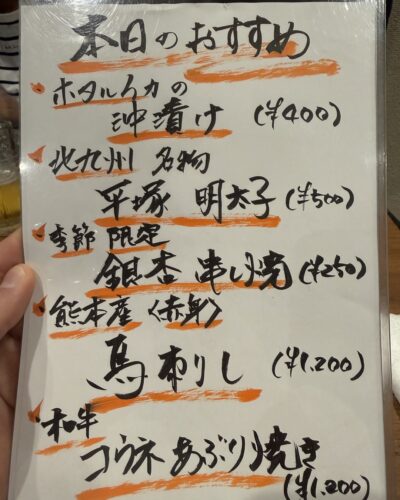 本日のおすすめ
ホタルイカの
沖漬け (¥400)
北九州 名物
平塚 明太子 (¥500)
季節 限定
銀杏 串し焼 (¥250)
熊本産〈赤身〉
馬刺し (¥1.200)
和牛
コウネ あぶり焼き
(¥1.200)